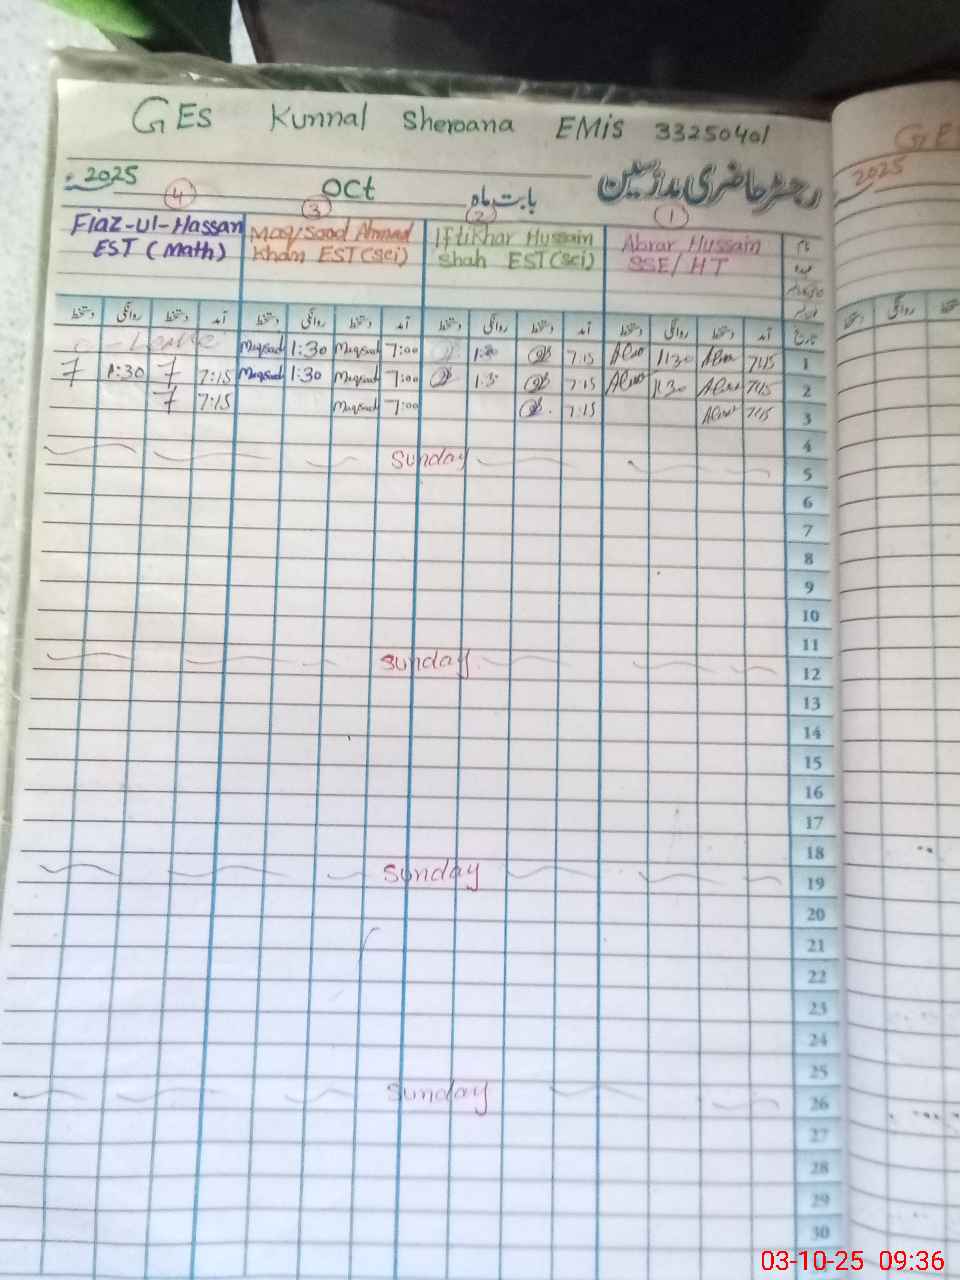 GES Kunnal Sheroana EMis 33250401
2025 Oct بابت ماہ رجسٹر حاضری مدرسین
4 3 2 1
Fiaz-ul-Hassan Maqsood Ahmad Iftikhar Hussain Abrar Hussain نام
EST (Math) Khan EST (Sci) Shah EST (Sci) SSE/HT عہدہ
دستخط روانگی دستخط آمد دستخط روانگی دستخط آمد دستخط روانگی دستخط آمد دستخط روانگی دستخط آمد تاریخ
Leave Maqsood 1:30 Maqsood 7:00 1:30 7:15 11:30 7:15 1
1:30 7:15 Maqsood 1:30 Maqsood 7:00 1:3 7:15 11:30 7:15 2
7:15 Maqsood 7:00 7:15 7:15 3
4
Sunday 5
6
7
8
9
10
11
Sunday 12
13
14
15
16
17
18
Sunday 19
20
21
22
23
24
25
Sunday 26
27
28
29
30
GE
2025
دستخط روانگی
03-10-25 09:36